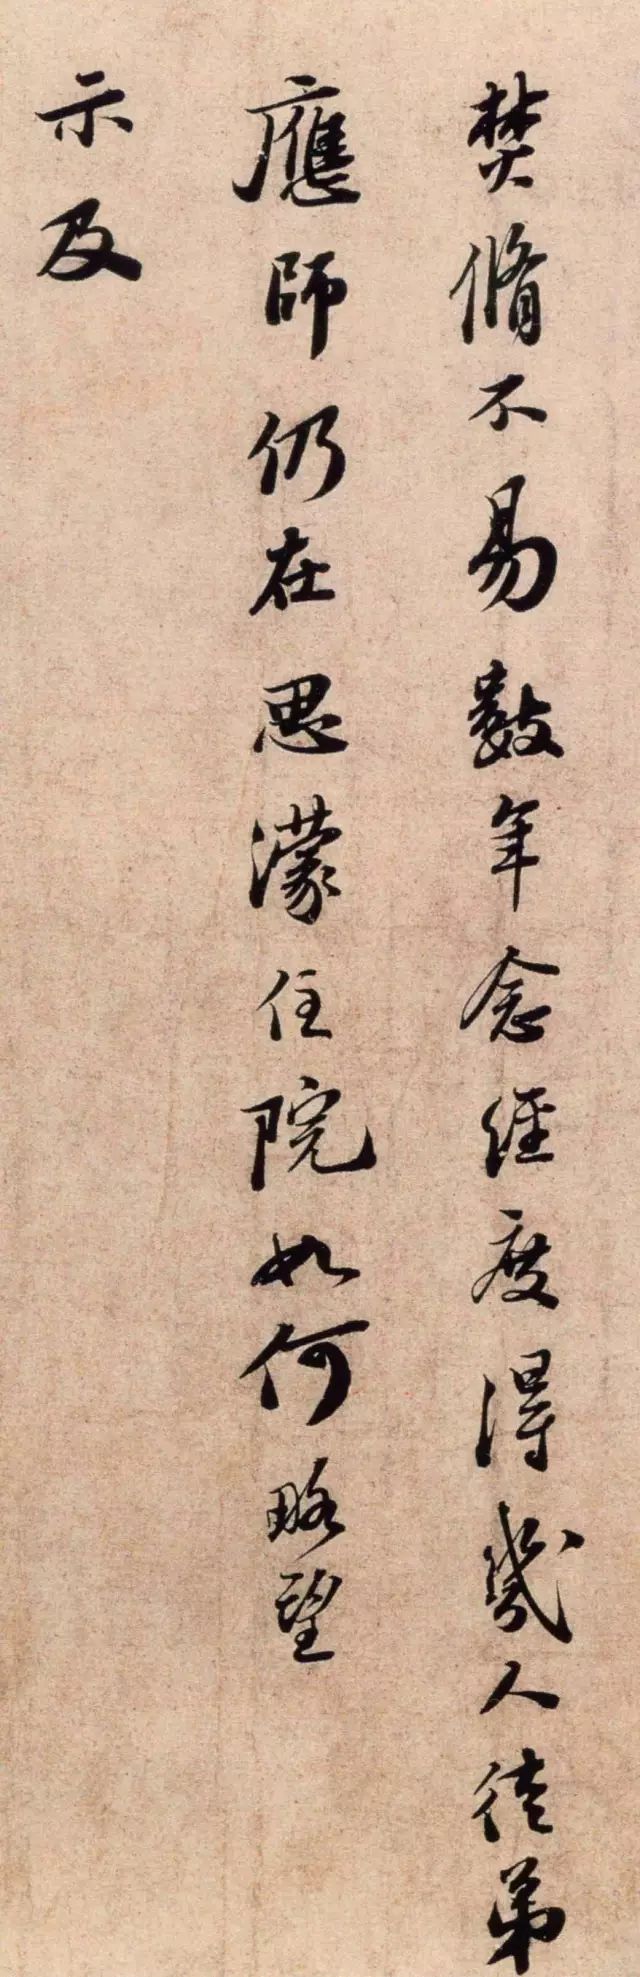 焚脩不易數年念經度得幾人徒弟
應師仍在思濛住院如何略望
示及